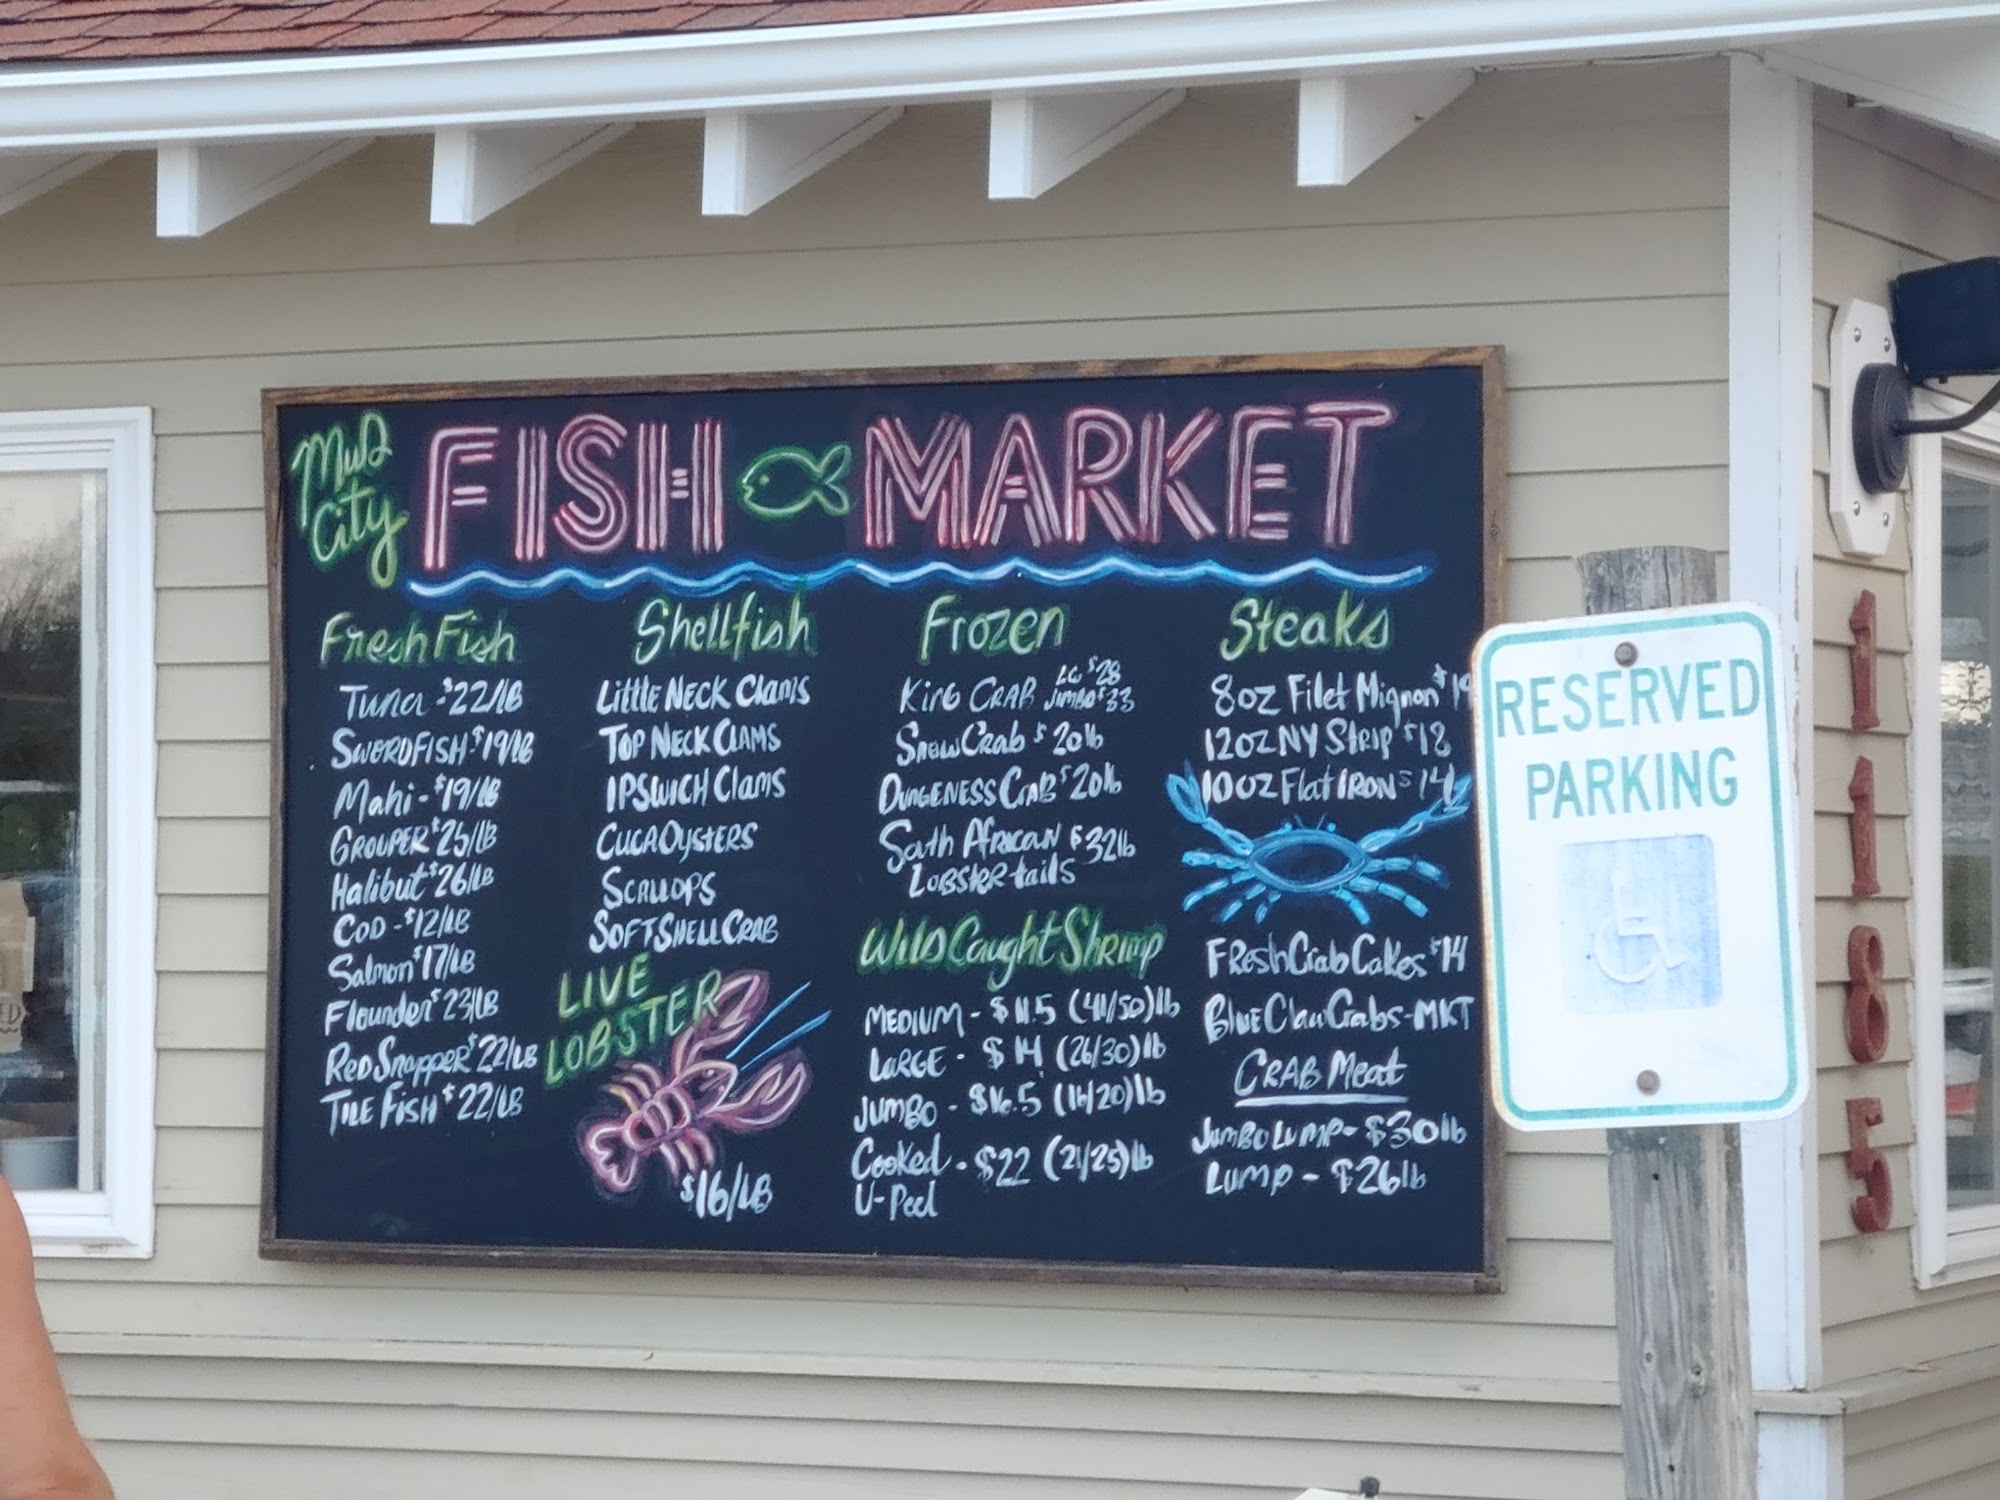 Mud
City
FISH MARKET
Fresh Fish
Tuna - $22/LB
SWORDFISH $19/LB
Mahi - $19/LB
GROUPER $25/LB
Halibut $26/LB
COD - $12/LB
Salmon $17/LB
Flounder $23/LB
RED Snapper $22/LB
TILE FISH $22/LB
Shellfish
LITTLE NECK Clams
TOP NECK CLAMS
IPSWICH Clams
CUCA OYSTERS
SCALLOPS
SOFT SHELL CRAB
LIVE
LOBSTER
$16/LB
Frozen
KING CRAB LG $28
JUMBO $33
SNOW Crab $20lb
DUNGENESS CRAB $20lb
South AFRICAN $32lb
LOBSTER tails
Wild Caught Shrimp
MEDIUM - $11.5 (41/50)lb
LARGE - $14 (26/30)lb
JUMBO - $16.5 (16/20)lb
Cooked - $22 (21/25)lb
U-Peel
Steaks
8oz Filet Mignon
12oz NY Strip $12
10oz Flat IRON $14
FResh Crab Cakes $14
Blue Claw Crabs - MKT
CRAB Meat
JUMBO LUMP - $30lb
LUMP - $26lb
RESERVED
PARKING
11185